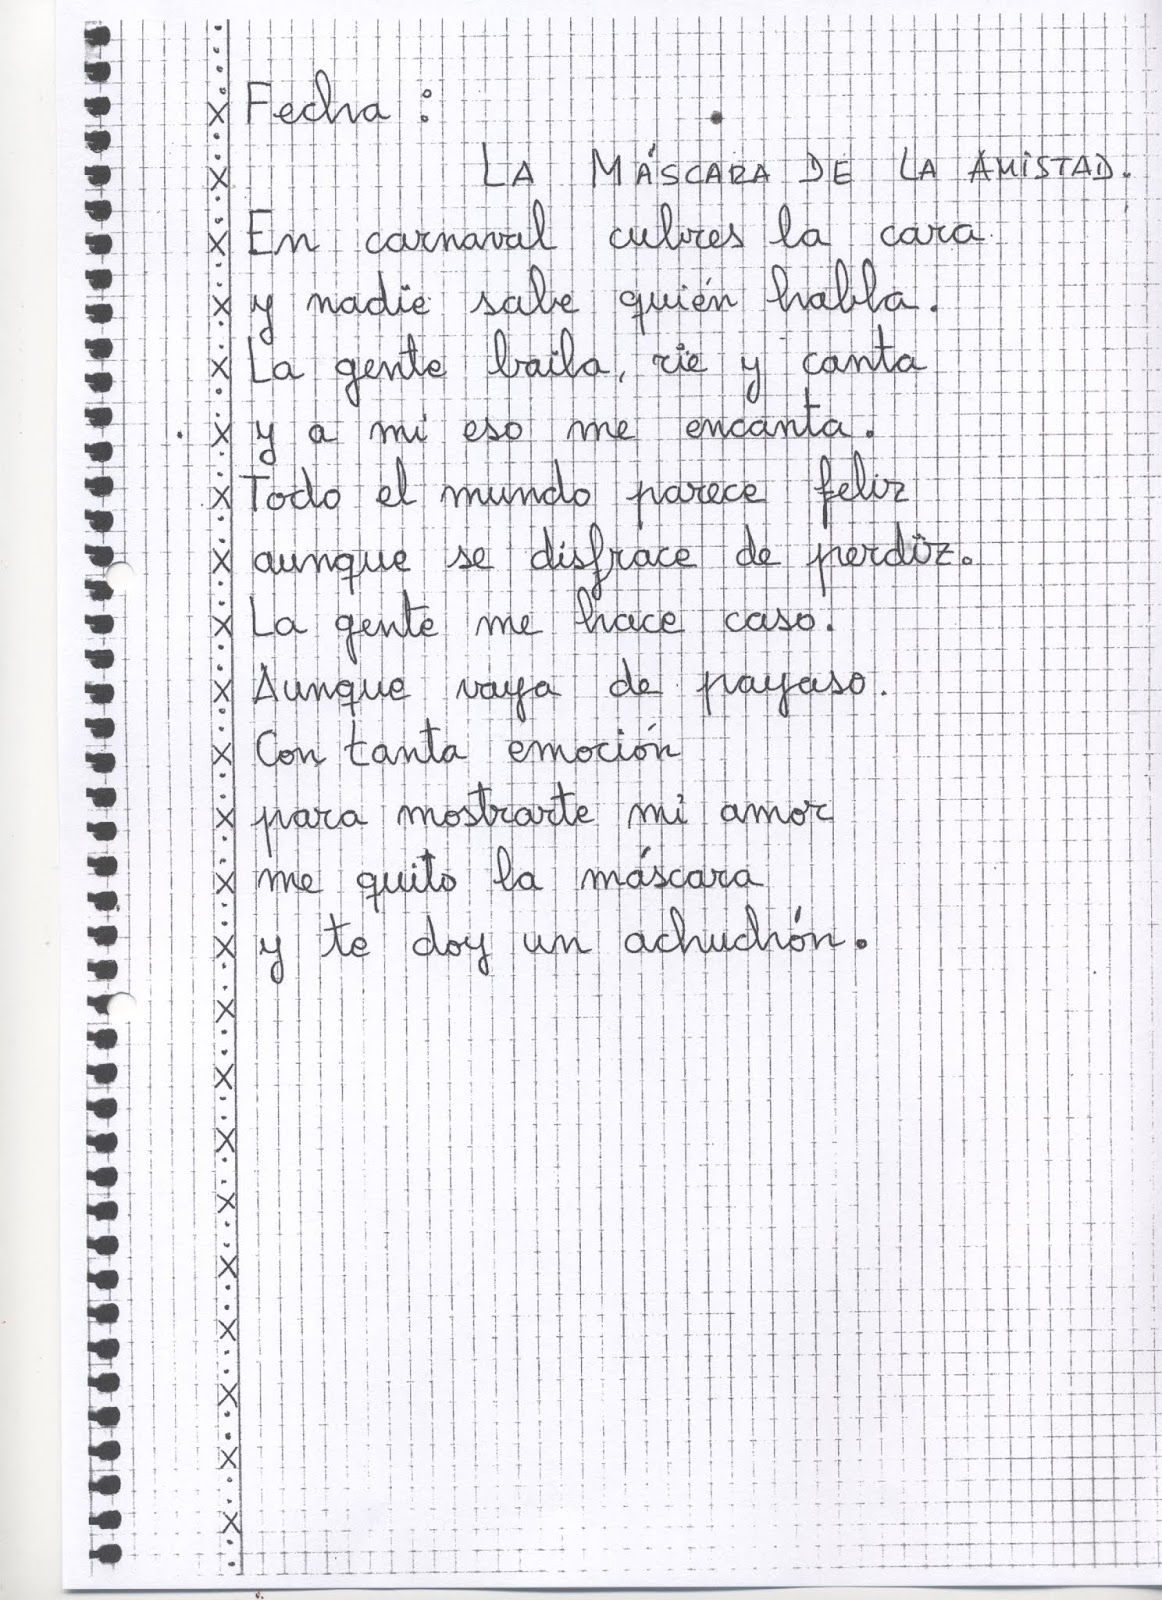 Fecha :
LA MÁSCARA DE LA AMISTAD.
En carnaval cubres la cara
y nadie sabe quién habla.
La gente baila, rie y canta
y a mi eso me encanta.
Todo el mundo parece feliz
aunque se disfrace de perdiz.
La gente me hace caso.
Aunque vaya de payaso.
Con tanta emoción
para mostrarte mi amor
me quito la máscara
y te doy un achuchón.